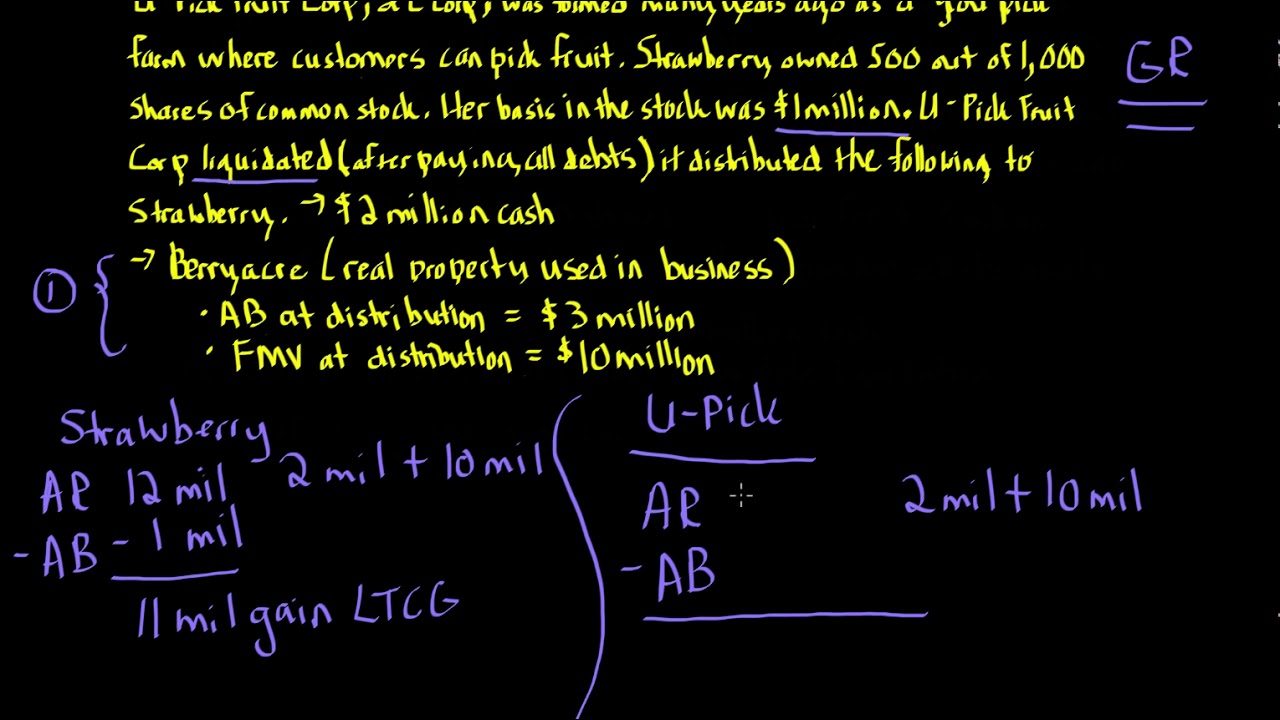 U-Pick Fruit Corp, a C Corp, was formed many years ago as a "you pick"
farm where customers can pick fruit. Strawberry owned 500 out of 1,000
GR
shares of common stock. Her basis in the stock was $1million. U-Pick Fruit
Corp liquidated (after paying all debts) it distributed the following to
Strawberry. → $2 million cash
→ Berryacre (real property used in business)
①
• AB at distribution = $3 million
• FMV at distribution = $10 million
Strawberry
2 mil + 10 mil
AR 12 mil
- AB - 1 mil
11 mil gain LTCG
U-Pick
AR
2 mil + 10 mil
- AB